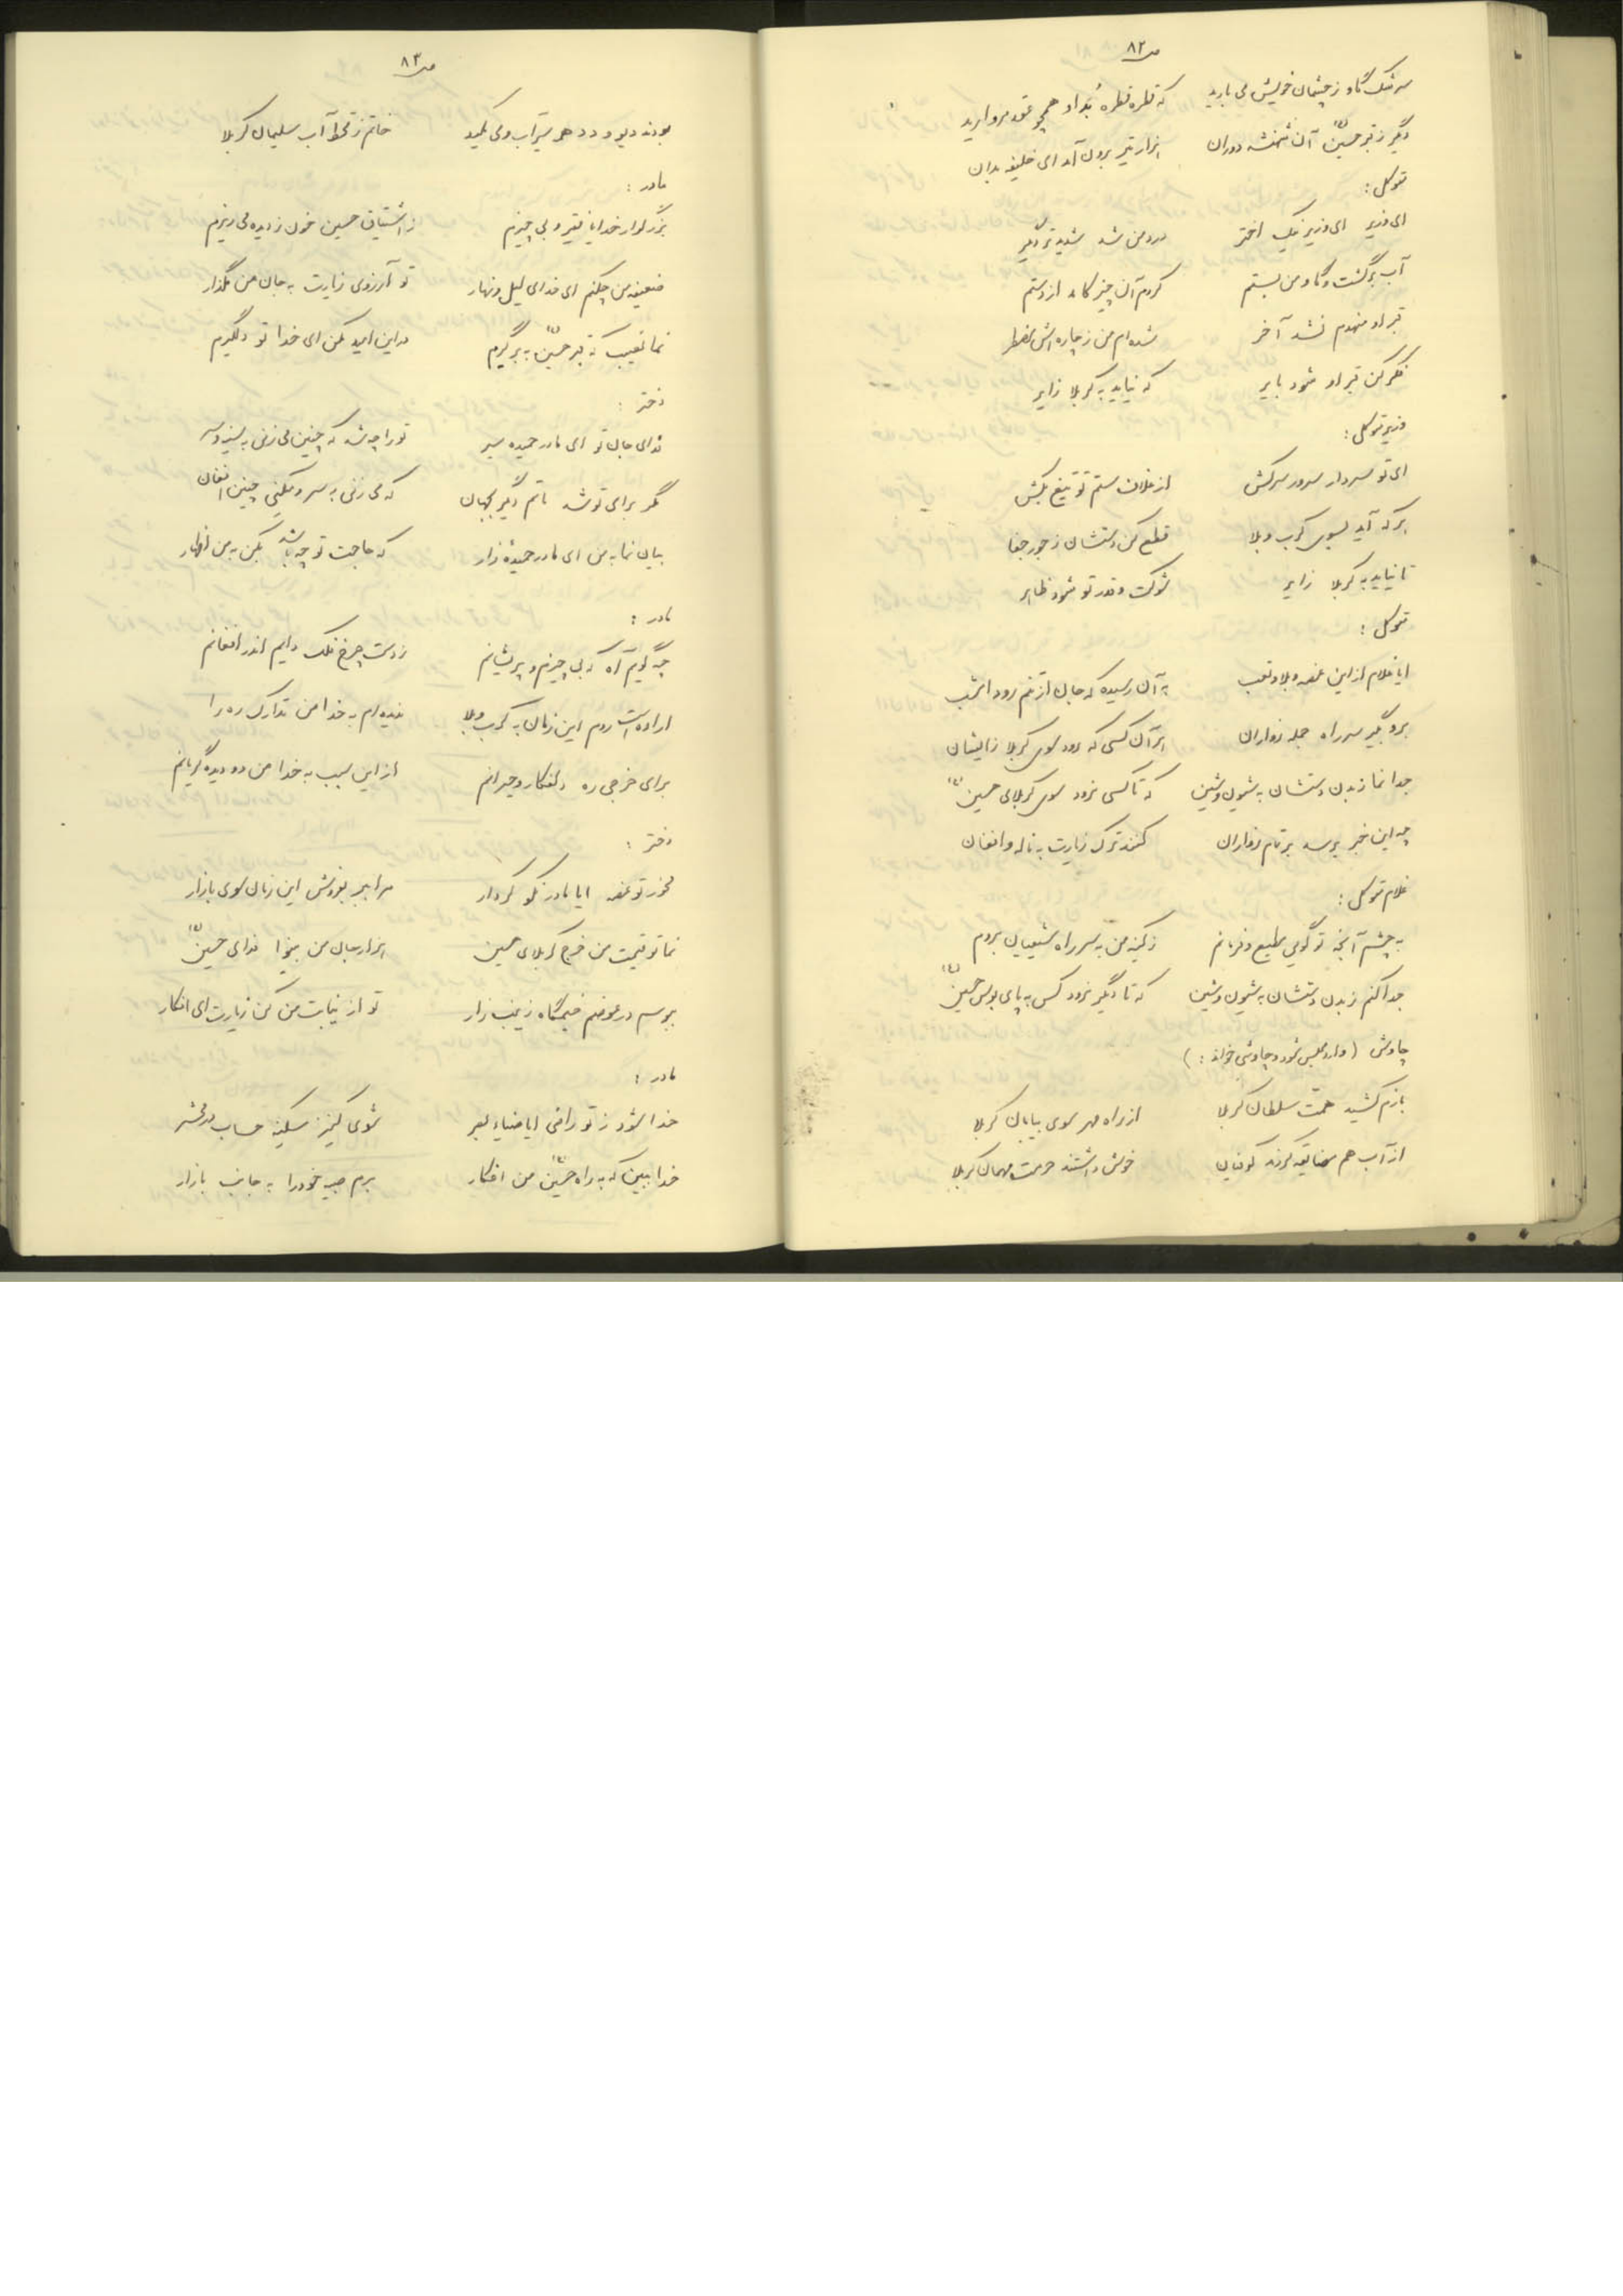 ص ۸۲
سرشک گاو ز چشمان خویش می بارید که قطره قطره بُد او همچو عقد مروارید
دگر ز قبر حسین ع آن شهنشه دوران هزار تیر برون آمد ای خلیفه بدان
متوکل :
ای وزیر ای وزیر نیک اختر درد من شد شدیدتر دیگر
آب برگشت و گاو من بستم کردم آن چیز کامد از دستم
قبر او منهدم نشد آخر شده ام من ز چاره اش مضطر
فکر کن قبر او شود بایر که نیاید به کربلا زایر
وزیر متوکل :
ای تو سردار سرور سرکش از غلاف ستم تو تیغ بکش
هر که آید بسوی کرب و بلا قطع کن دستشان ز جور جفا
تا نیاید به کربلا زایر شوکت و قدر تو شود ظاهر
متوکل :
ایا غلام از این غصه و بلا و تعب به آن رسیده که جان از تنم رود امشب
برو بگیر سر راه جمله زواران هر آن کسی که رود سوی کربلا ز ایشان
جدا نما ز بدن دستشان به شیون و شین که تا کسی نرود سوی کربلای حسین ع
چه این خبر برسد بر تمام زواران کنند ترک زیارت به ناله و افغان
غلام متوکل :
به چشم آنچه تو گویی مطیع و فرمانم ز کینه من به سر راه شیعیان بروم
جدا کنم ز بدن دستشان به شیون و شین که تا دگر نرود کس به پای بوس حسین ع
چاوش ( وارد مجلس شود و چاوشی خواند : )
بازم کشید همت سلطان کربلا از راه مهر سوی بیابان کربلا
از آب هم مضایقه کردند کوفیان خوش داشتند حرمت مهمان کربلا
ص ۸۳
بودند دیو و دد همه سیراب و می مکید خاتم ز قحط آب سلیمان کربلا
مادر :
بزرگوار خدایا فقیر و بی چیزم ز اشتیاق حسین خون ز دیده می ریزم
ضعیفه من چکنم ای خدای لیل و نهار تو آرزوی زیارت به جان من مگذار
نما نصیب که قبر حسین ع به بر گیرم در این امید مکن ای خدا تو دلگیرم
دختر :
فدای جان تو ای مادر حمیده سیر تو را چه شد که چنین می زنی به سینه و سر
مگر برای تو شد ماتم دگر بجهان که می زنی به سر و میکنی چنین افغان
بیان نما به من ای مادر حمیدهٔ زار که حاجت تو چه باشد بکن به من اظهار
مادر :
چه گویم آه که بی چیزم و پریشانم ز دست چرخ فلک دایم اندر افغانم
اراده است روم این زمان به کرب و بلا ندیده ام به خدا من تدارک ره را
برای خرجی ره دلفکار و حیرانم از این سبب به خدا من دو دیده گریانم
دختر :
مخور تو غصه ایا مادر نکو کردار مرا ببر بفروش این زمان سوی بازار
نما تو قیمت من خرج کربلای حسین هزار جان من بینوا فدای حسین ع
ببوسم در عوضم خیمگاه زینب زار تو از نیابت من کن زیارت ای افکار
مادر :
خدا شود ز تو راضی ایا ضیاء بصر شوی کنیز سکینه حساب در محشر
خدا ببین که به راه حسین ع من افکار برم حبیبه خود را به جانب بازار